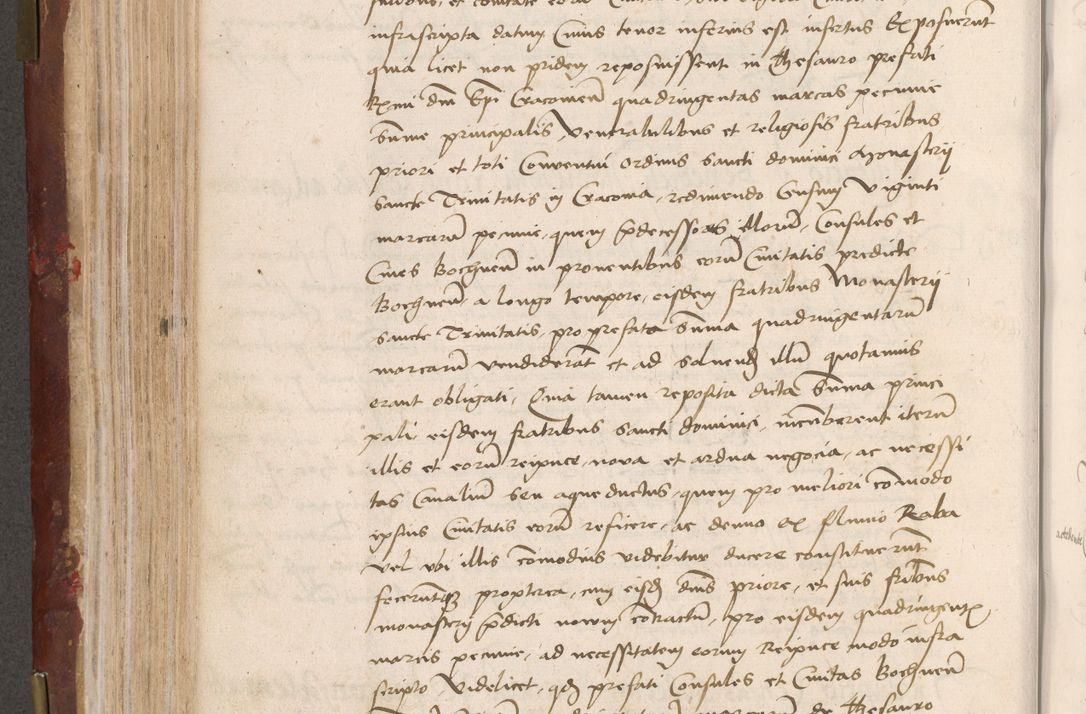 infrascripta datum Cuius tenor inferius est insertus Exposuerunt
quia licet non pridem reposuissent in Thesauro prefati
Rmi dni Epi Cracouien quadringentas marcas pecunie
Sume principalis, Venerabilibus et religiosis fratribus
priori et toti Conuentui ordinis sancti dominici Monasterij
sancte Trinitatis in Cracouia, redimendo Censum Viginti
marcarum pecunie, quem predecessores illorum, Consules et
Ciues Bochnen in prouentibus eorum Ciuitatis predicte
Bochnen, a longo tempore, eisdem fratribus Monasterij
sancte Trinitatis, pro prefata Suma quadringentarum
marcarum vendiderant et ad soluendum illum quotannis
erant obligati, Quia tamen reposita dicta Suma princi
pali eisdem fratribus sancti dominici, incumberent iterum
illis et eorum reipuce, noua et ardua negocia, ac necessi
tas Canalium seu aqueductus, quem pro meliori comodo
ipsius Ciuitatis eorum reficere, ac denuo ex fluuio Raba
vel vbi illis comodius videbitur ducere constituerunt
feceruntque propterea, cum eisdem dnis priore, et suis fribus
monasterij predicti nouum contractum, pro eisdem quadringentis
marcis pecunie, ad necessitatem eorum Reipuce modo infra
scripto, Videlicet, quod prefati Consules et Ciuitas Bochnen
de Thesauro